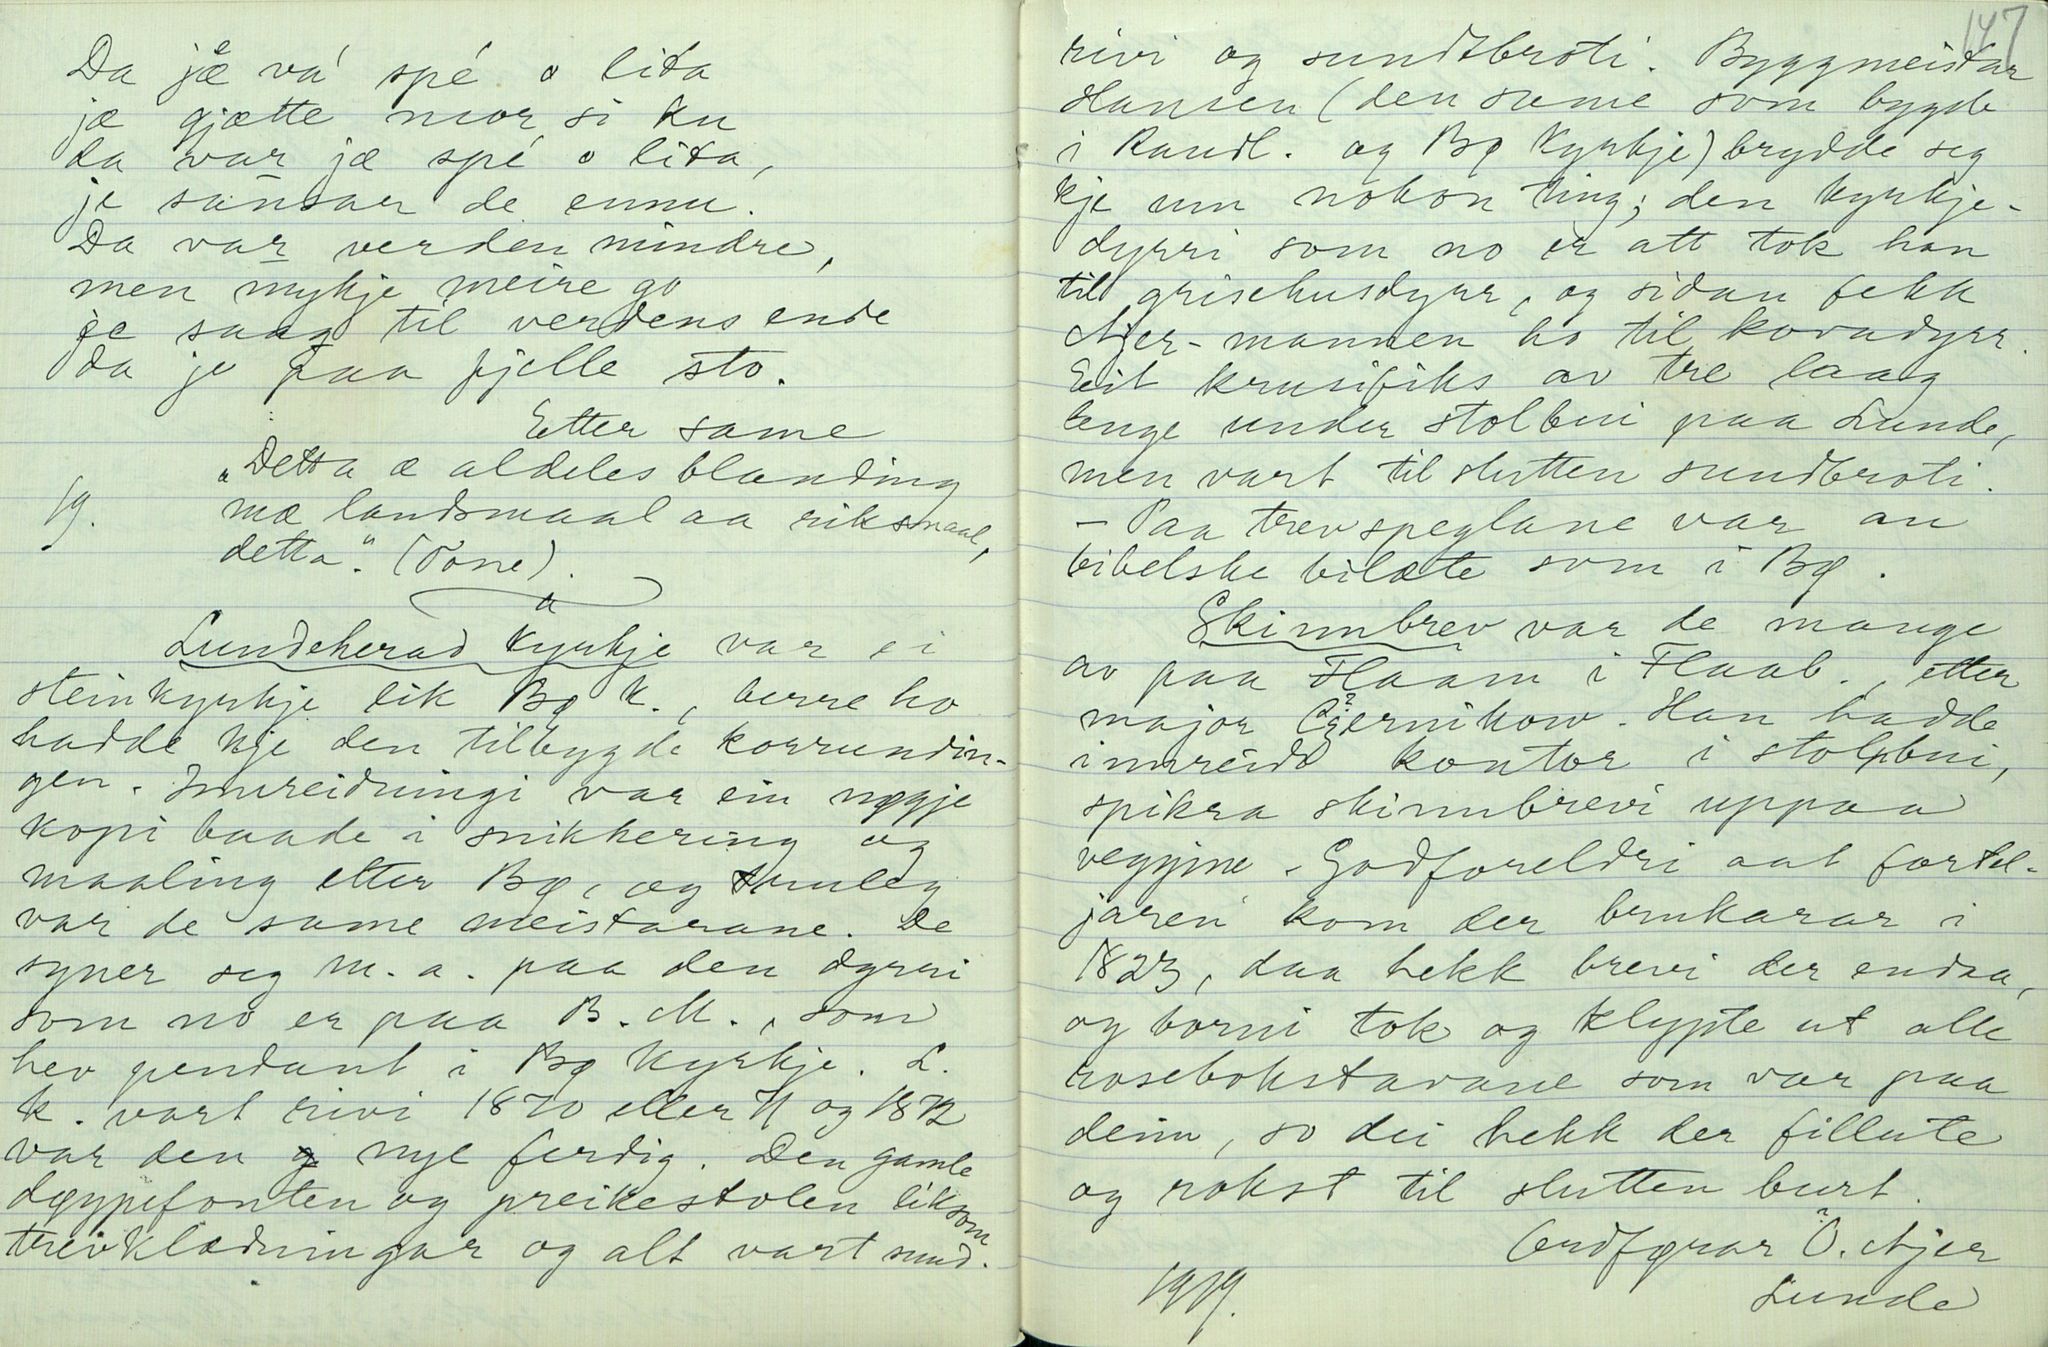 Da jæ vá spé o lita
jæ gjætte mor si ku
da var jæ spé o lita,
je sansar de ennu.
Da var verden mindre,
men mykje meire go
je saag til verdens ende
da je paa fjelle sto.
Etter same
„Detta æ aldeles blanding
19. mæ landsmaal aa riksmaal,
detta." (Tone).
Lundeherad kyrkje var ei
steinkyrkje lik Bø k., berre ho
hadde kje den tilbygde korrundin-
gen. Innreidningi var ein nøgje
kopi baade i snikkering og
maaling etter Bø, og truleg
var de same meistarane. De
syner seg m. a. paa den dyrri
som no er paa B. M., som
hev pendant i Bø kyrkje. L.
k. vart rivi 1870 eller 71 og 1872
var den nye ferdig. Den gamle
døypefonten og preikestolen liksom
treivklædningar og alt vart sund-
147
rivi og sundtbroti. Byggmeistar
Hansen (den same som bygde
i Raudl. og Bø kyrkje) brydde seg
kje um nokon ting; den kyrkje-
dyrri som no er att tok han
til grisehusdyrr, og sidan fekk
Ajer-mannen ho til kovadyrr.
Eit krusifiks av tre laag
lenge under stolbui paa Lunde,
men vart til slutten sundbroti.
- Paa trevspeglane var au
bibelske bilæte som i Bø.
Skinnbrev var de mange
av paa Flaam i Flaab., etter
major Czernikow. Han hadde
innreidd kontor i stolpbui,
spikra skinnbrevi uppaa
veggjine. Godforeldri aat fortel-
jaren kom der brukarar i
1823, daa hekk brevi der endaa,
og borni tok og klypte ut alle
rosebokstavane som var paa
deim, so dei hekk der fillute
og rokst til slutten burt.
Ordførar O. Ajer
1919. Lunde